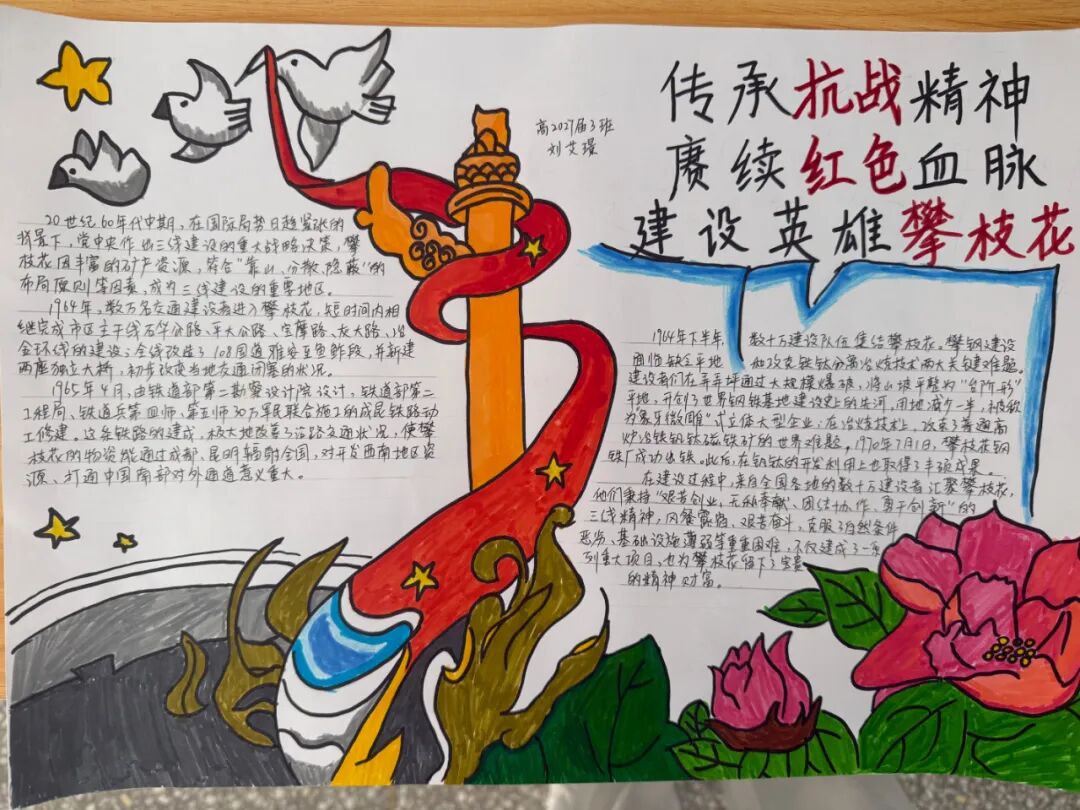 传承抗战精神
赓续红色血脉
建设英雄攀枝花
高2027届3班
刘艾璟
20世纪60年代中期，在国际局势日趋紧张的
背景下，党中央作出三线建设的重大战略决策，攀
枝花因丰富的矿产资源，符合“靠山、分散、隐蔽”的
布局原则等因素，成为三线建设的重要地区。
1964年，数万名交通建设者进入攀枝花，短时间内相
继完成市区主干线石华公路、平大公路、宝摩路、灰大路、冶
金环线的建设；全线改造了108国道雅安至鱼鲊段，并新建
两座独立大桥，初步改变当地交通闭塞的状况。
1965年4月，由铁道部第二勘察设计院设计，铁道部第二
工程局、铁道兵第四师、第五师30万军民联合施工的成昆铁路动
工修建。这条铁路的建成，极大地改善了沿路交通状况，使攀
枝花的物资能通过成都、昆明辐射全国，对开发西南地区资
源、打通中国南部对外通道意义重大。
1964年下半年，数十万建设队伍集结攀枝花。攀钢建设
面临缺平地和攻克铁钛分离冶炼技术两大关键难题。
建设者们在弄弄坪通过大规模爆破，将山坡平整为“台阶形”
平地，开创了世界钢铁基地建设史上的先河，用地减少一半，被称
为“象牙微雕”式立体大型企业；在冶炼技术上，攻克了普通高
炉冶铁钒钛磁铁矿的世界难题。1970年7月1日，攀枝花钢
铁厂成功出铁。此后，在钒钛的开发利用上也取得了丰硕成果。
在建设过程中，来自全国各地的数十万建设者汇聚攀枝花，
他们秉持“艰苦创业、无私奉献、团结协作、勇于创新”的
三线精神，风餐露宿、艰苦奋斗，克服了自然条件
恶劣、基础设施薄弱等重重困难，不仅建成了一系
列重大项目，也为攀枝花留下了宝贵
的精神财富。